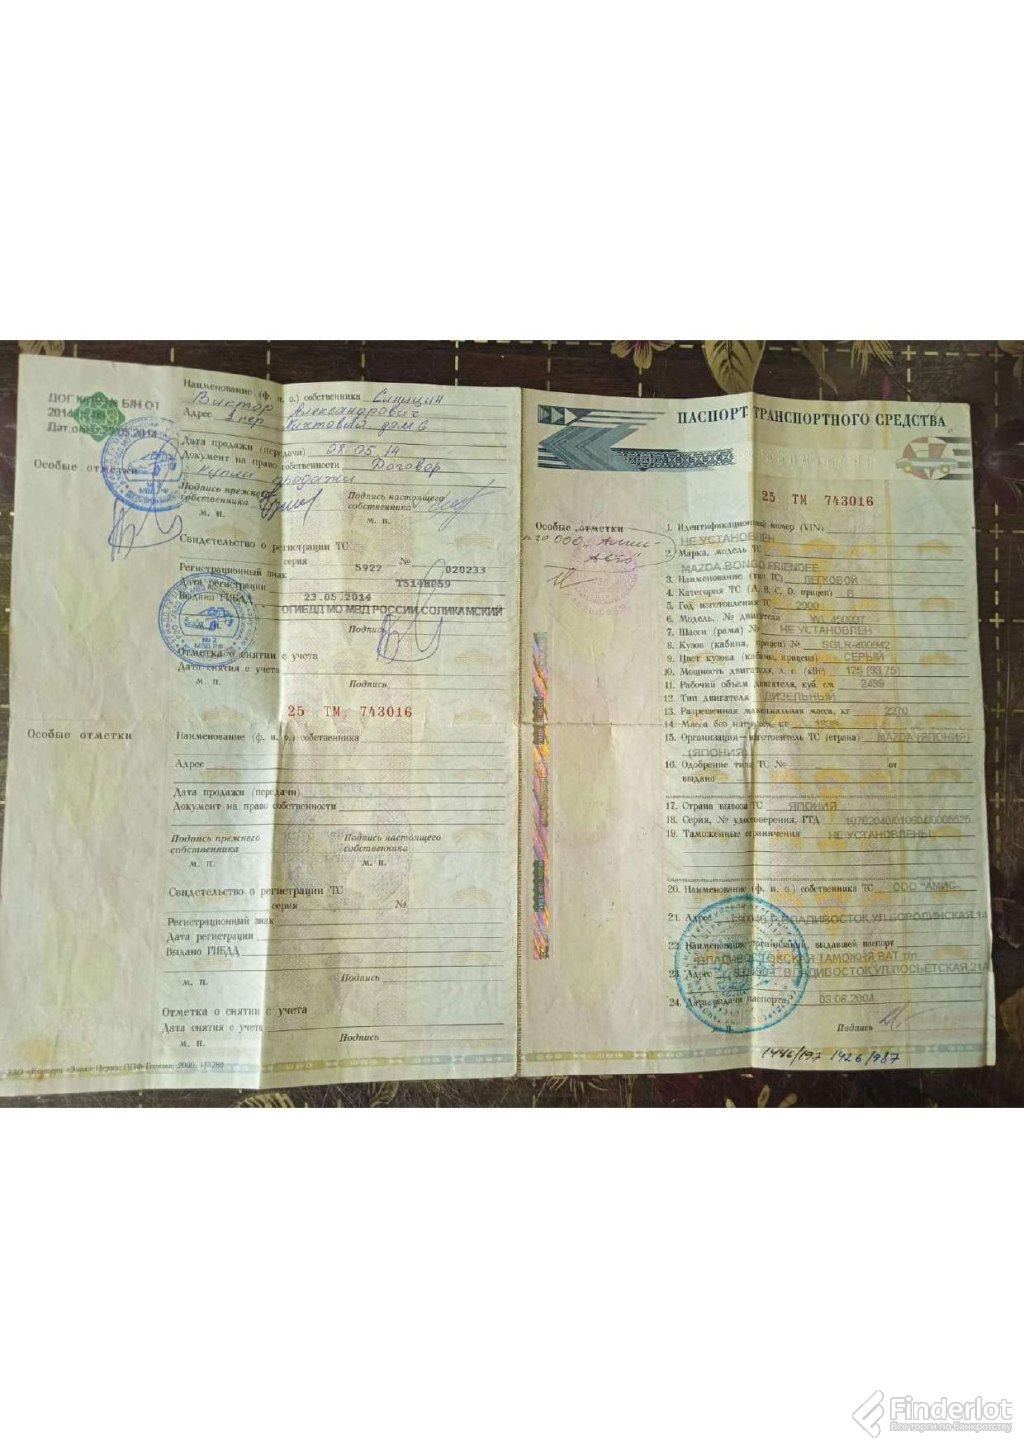 Наименование (ф. и. о.) собственника Синицин
Виктор Александрович
Адрес 1 пер. Пихтовый дом 6
ДОГ № Б/Н ОТ
2014
05.2014
Особые отметки
Дата продажи (передачи) 08.05.14
Документ на право собственности Договор
купли продажи
Подпись прежнего собственника
Подпись настоящего собственника
м. п.
м. п.
Свидетельство о регистрации ТС
серия 5922 № 020233
Регистрационный знак Т514 59
Дата регистрации 23.05.2014
Выдано ГИБДД ОГИБДД МО МВД РОССИИ СОЛИКАМСКИЙ
Подпись
Отметка о снятии с учета
Дата снятия с учета
м. п.
Подпись
25 ТМ 743016
Особые отметки
Наименование (ф. и. о.) собственника
Адрес
Дата продажи (передачи)
Документ на право собственности
Подпись прежнего собственника
Подпись настоящего собственника
м. п.
м. п.
Свидетельство о регистрации ТС
серия №
Регистрационный знак
Дата регистрации
Выдано ГИБДД
м. п.
Подпись
Отметка о снятии с учета
Дата снятия с учета
м. п.
Подпись
ПАСПОРТ ТРАНСПОРТНОГО СРЕДСТВА
25 ТМ 743016
Особые отметки
ООО "Амис-
Авто"
1. Идентификационный номер (VIN)
НЕ УСТАНОВЛЕН
2. Марка, модель ТС
MAZDA BONGO FRIENDEE
3. Наименование (тип ТС) ЛЕГКОВОЙ
4. Категория ТС (А, В, С, D, прицеп) B
5. Год изготовления ТС 2000
6. Модель, № двигателя WL 450037
7. Шасси (рама) № НЕ УСТАНОВЛЕН
8. Кузов (кабина, прицеп) № SGLR-400942
9. Цвет кузова (кабины, прицепа) СЕРЫЙ
10. Мощность двигателя, л. с. (кВт) 125 (93.75)
11. Рабочий объем двигателя, куб. см 2499
12. Тип двигателя ДИЗЕЛЬНЫЙ
13. Разрешенная максимальная масса, кг 2270
14. Масса без нагрузки, кг
15. Организация—изготовитель ТС (страна) MAZDA (ЯПОНИЯ)
(ЯПОНИЯ)
16. Одобрение типа ТС № от
выдано
17. Страна вывоза ТС ЯПОНИЯ
18. Серия, № удостоверения, ГТД 10702040/010604/0005625
19. Таможенные ограничения НЕ УСТАНОВЛЕНЫ
20. Наименование (ф. и. о.) собственника ТС ООО "АМИС
21. Адрес Г. ВЛАДИВОСТОК, УЛ.БОРОДИНСКАЯ,14
22. Наименование организации, выдавшей паспорт
ВЛАДИВОСТОКСКАЯ ТАМОЖНЯ ВАТ т/п
23. Адрес Г. ВЛАДИВОСТОК, УЛ.ПОСЬЕТСКАЯ,21А
24. Дата выдачи паспорта 03.06.2004
м. п.
Подпись
1446/197 1426/987
Finderlot
Все торги по банкротству